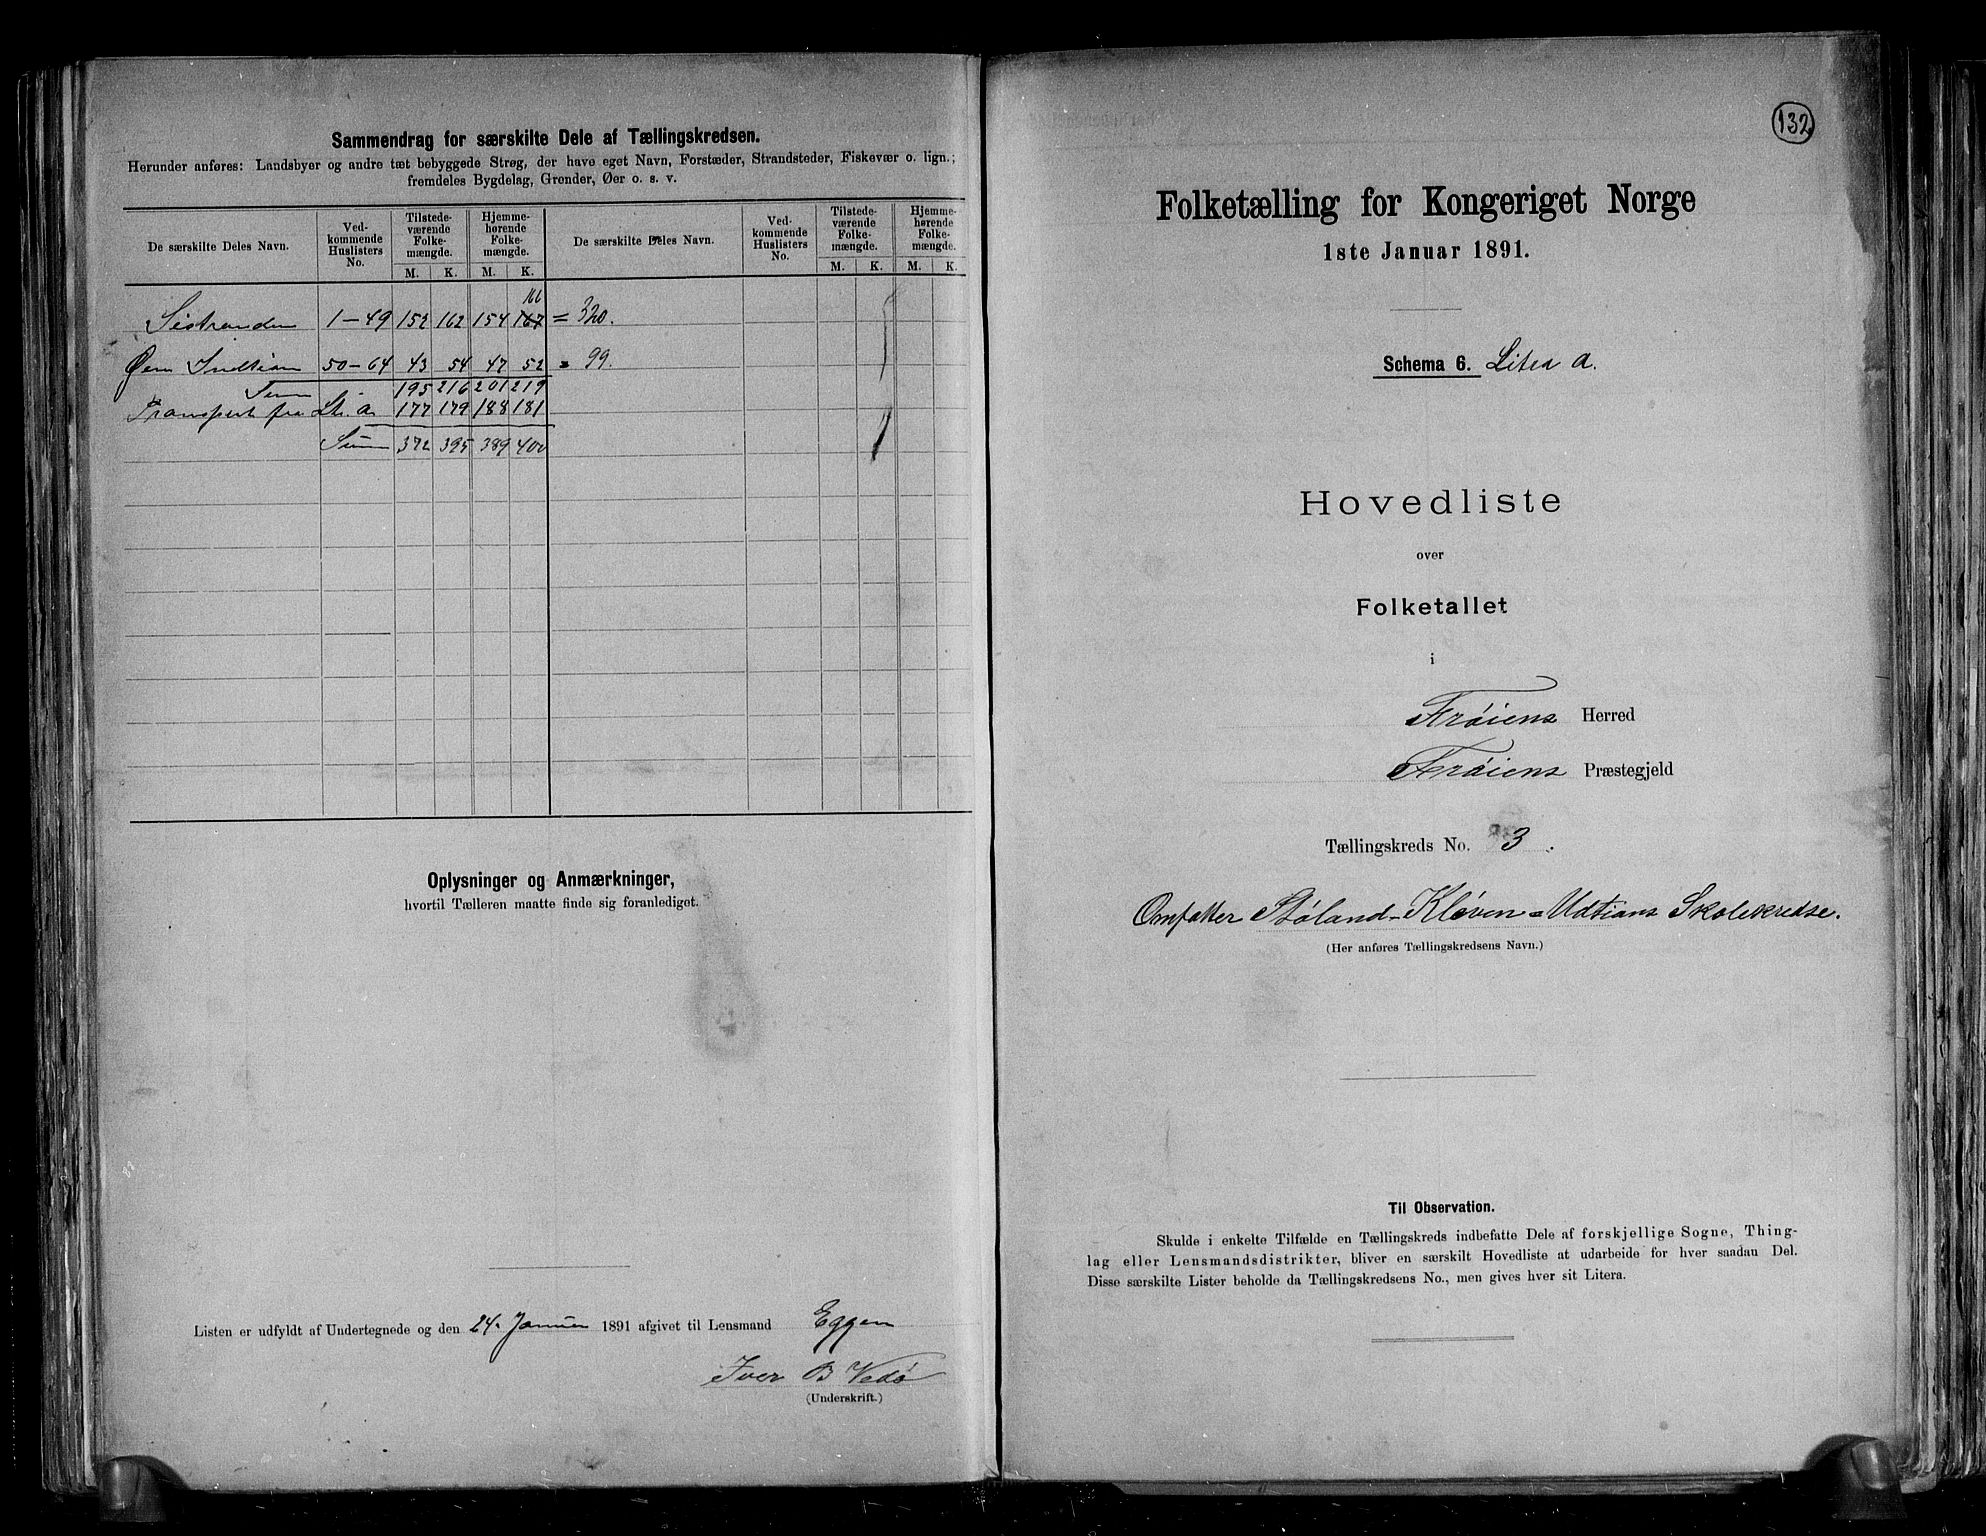 Sammendrag for særskilte Dele af Tællingskredsen.
Herunder anføres: Landsbyer og andre tæt bebyggede Strøg, der have eget Navn, Forstæder, Strandsteder, Fiskevær o. lign.;
fremdeles Bygdelag, Grender, Øer o. s. v.
De særskilte Deles Navn.
Ved-
kommende
Huslisters
No.
Tilstede-
værende
Folke-
mængde.
M. K.
Hjemme-
hørende
Folke-
mængde.
M. K.
De særskilte Deles Navn.
Ved-
kommende
Huslisters
No.
Tilstede-
værende
Folke-
mængde.
M. K.
Hjemme-
hørende
Folke-
mængde.
M. K.
166
Sistranden 1-49 152 162 154 167 = 320.
Øen Indtian 50-64 43 54 47 52 = 99.
Sum 195 216 201 219
Transport fra Lit. a 177 179 188 181
Sum 372 395 389 400
Oplysninger og Anmærkninger,
hvortil Tælleren maatte finde sig foranlediget.
Listen er udfyldt af Undertegnede og den 24. Januar 1891 afgivet til Lensmand Eggen
Iver B Vedø
(Underskrift.)
132
Folketælling for Kongeriget Norge
1ste Januar 1891.
Schema 6. Litra a.
Hovedliste
over
Folketallet
i
Frøiens Herred
Frøiens Præstegjeld
Tællingskreds No. 3.
Omfatter Støland-Kløven-Udtians Skolekredse.
(Her anføres Tællingskredsens Navn.)
Til Observation.
Skulde i enkelte Tilfælde en Tællingskreds indbefatte Dele af forskjellige Sogne, Thing-
lag eller Lensmandsdistrikter, bliver en særskilt Hovedliste at udarbeide for hver saadan Del.
Disse særskilte Lister beholde da Tællingskredsens No., men gives hver sit Litera.